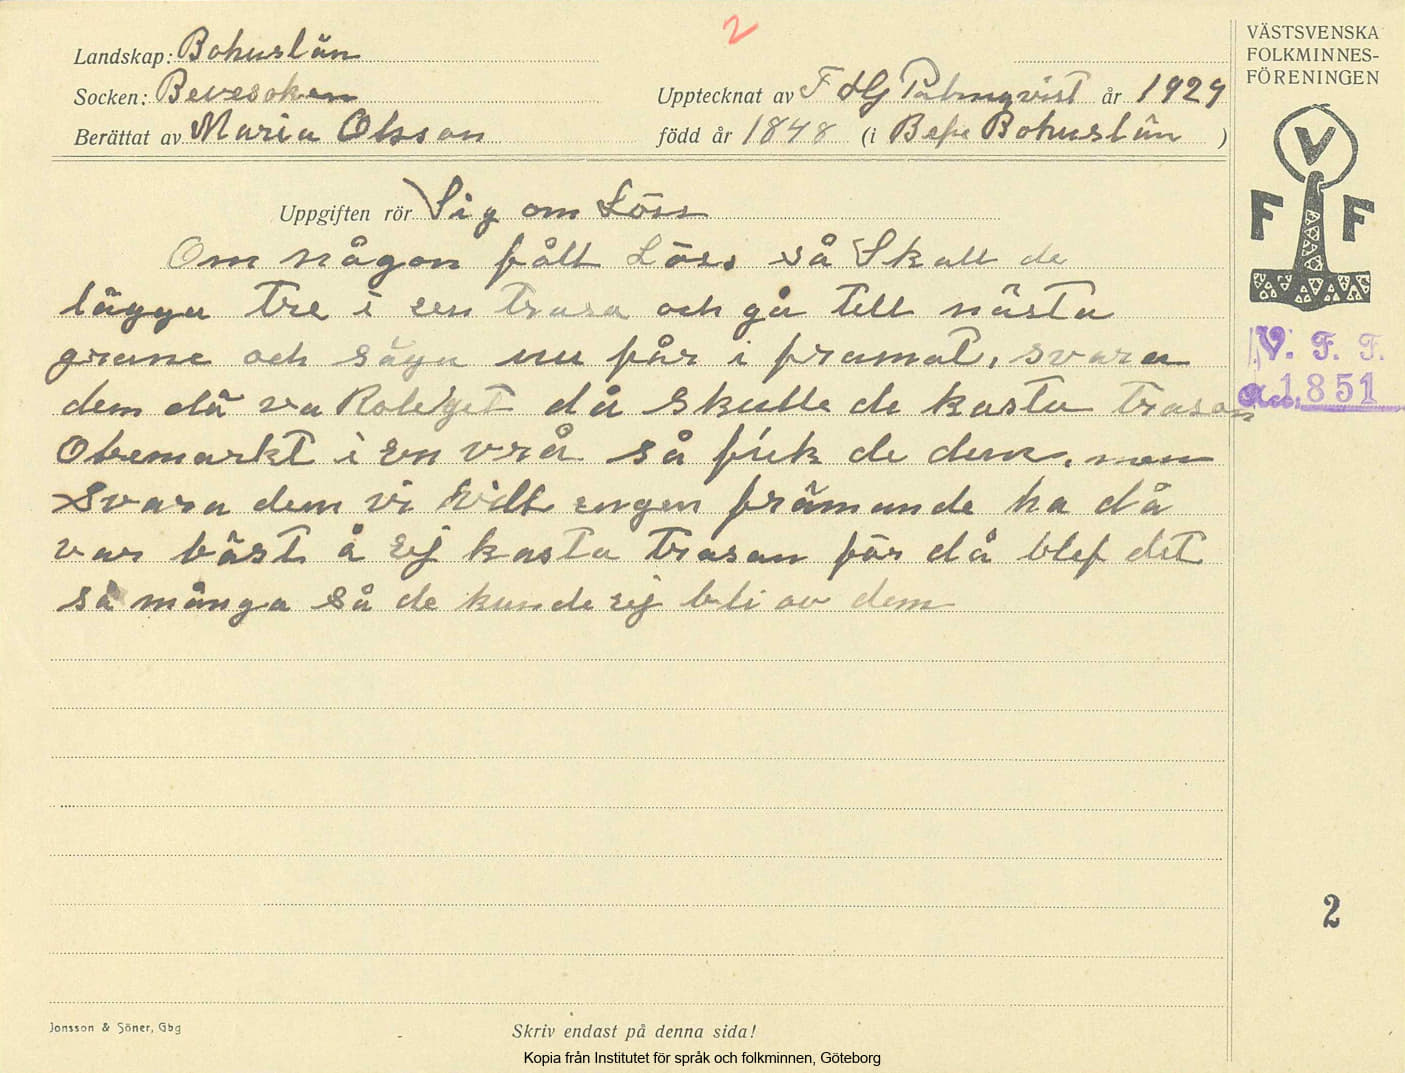 2
Landskap: Bohuslän
Socken: Bevesoken
Upptecknat av F HG Palmqvist år 1929
Berättat av Maria Olsson
född år 1848 (i Befve Bohuslän )
Uppgiften rör Sig om Löss
Om någon fått Löss så Skall de
lägga tre i een trasa och gå till nästa
grane och säga nu får i framat, svara
dem dä va Roleget då skulle de kasta trasan
Obemarkt i en vrå så fick de dem, men
Svara dem vi vill engen främande ha då
var bäst å ej kasta trasan för då blef det
så många så de kunde ej bli av dem
VÄSTSVENSKA
FOLKMINNES-
FÖRENINGEN
V
F F
V. F. F.
Acc. 1851
2
Jonsson & Söner, Gbg
Skriv endast på denna sida!
Kopia från Institutet för språk och folkminnen, Göteborg